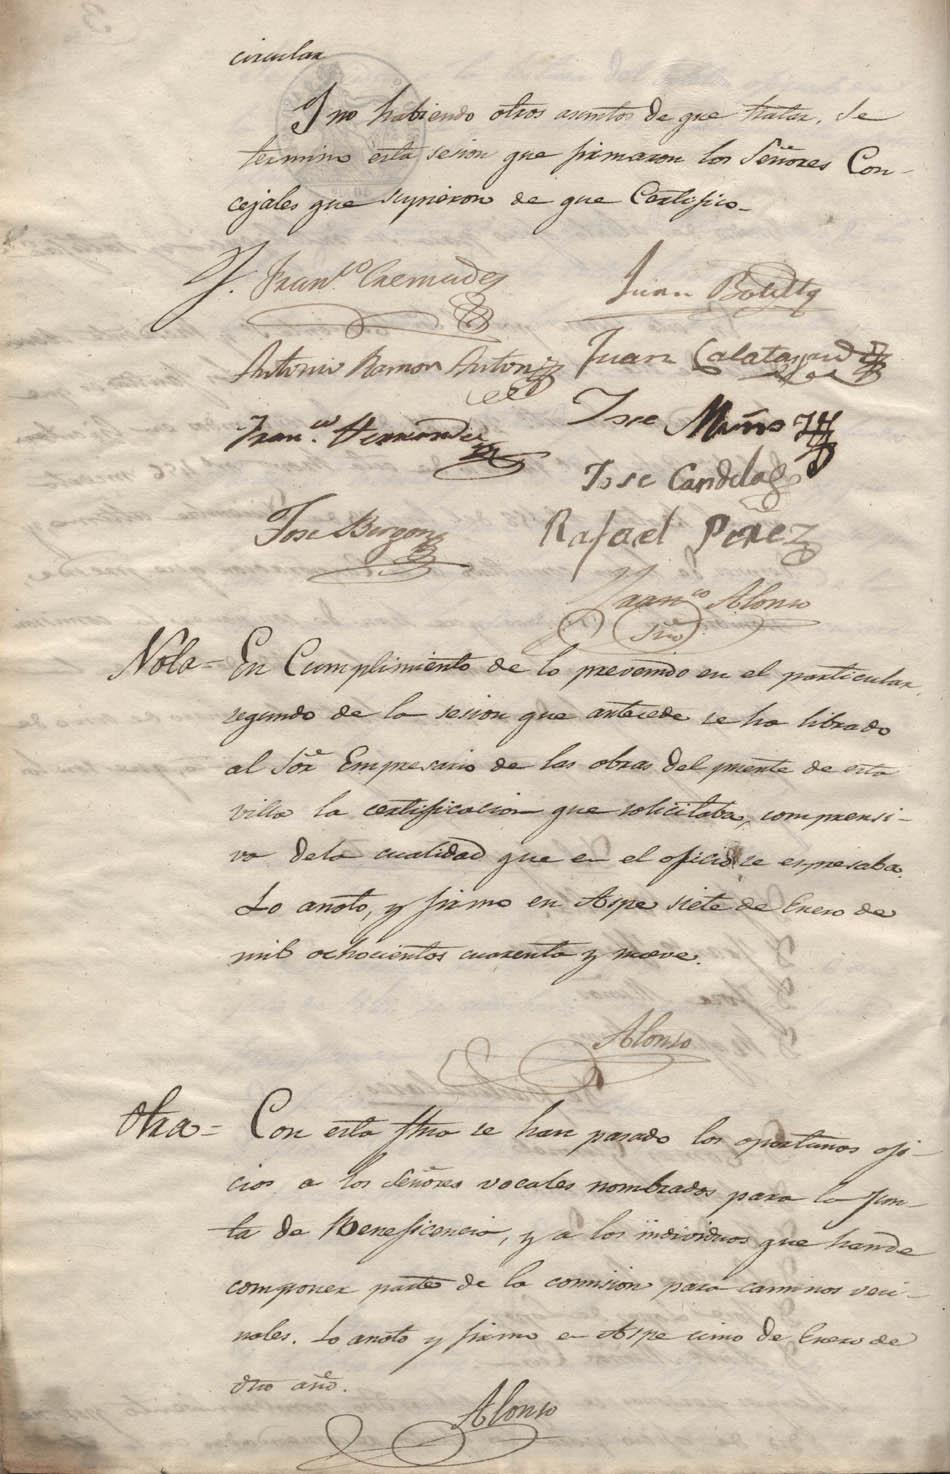 circular
Y no habiendo otros asuntos de que tratar, se
termino esta sesion que firmaron los Señores Con-
cejales que supieron de que Certifico_
Franco Cremades
Juan Botella
Antonio Ramon Anton
Juan Calatayud
Franco Hernandez
Jose Muños
Jose Candela
Jose Burgos
Rafael Perez
Franco Alonso
Srio
Nota= En Cumplimiento de lo prevenido en el particular
segundo de la sesion que antecede se ha librado
al Sor Empresario de las obras del puente de esta
villa la certificacion que solicitaba, comprensi-
va dela cualidad que en el oficio se espresaba.
Lo anoto, y firmo en Aspe siete de Enero de
mil ochocientos cuarenta y nueve.
Alonso
Otra= Con esta fha se han pasado los oportunos ofi-
cios a los Señores vocales nombrados para la Jun-
ta de Beneficencia, y a los individuos que hande
componer parte de la comision para caminos veci-
nales. Lo anoto y firmo en Aspe de Enero de
dho año.
Alonso